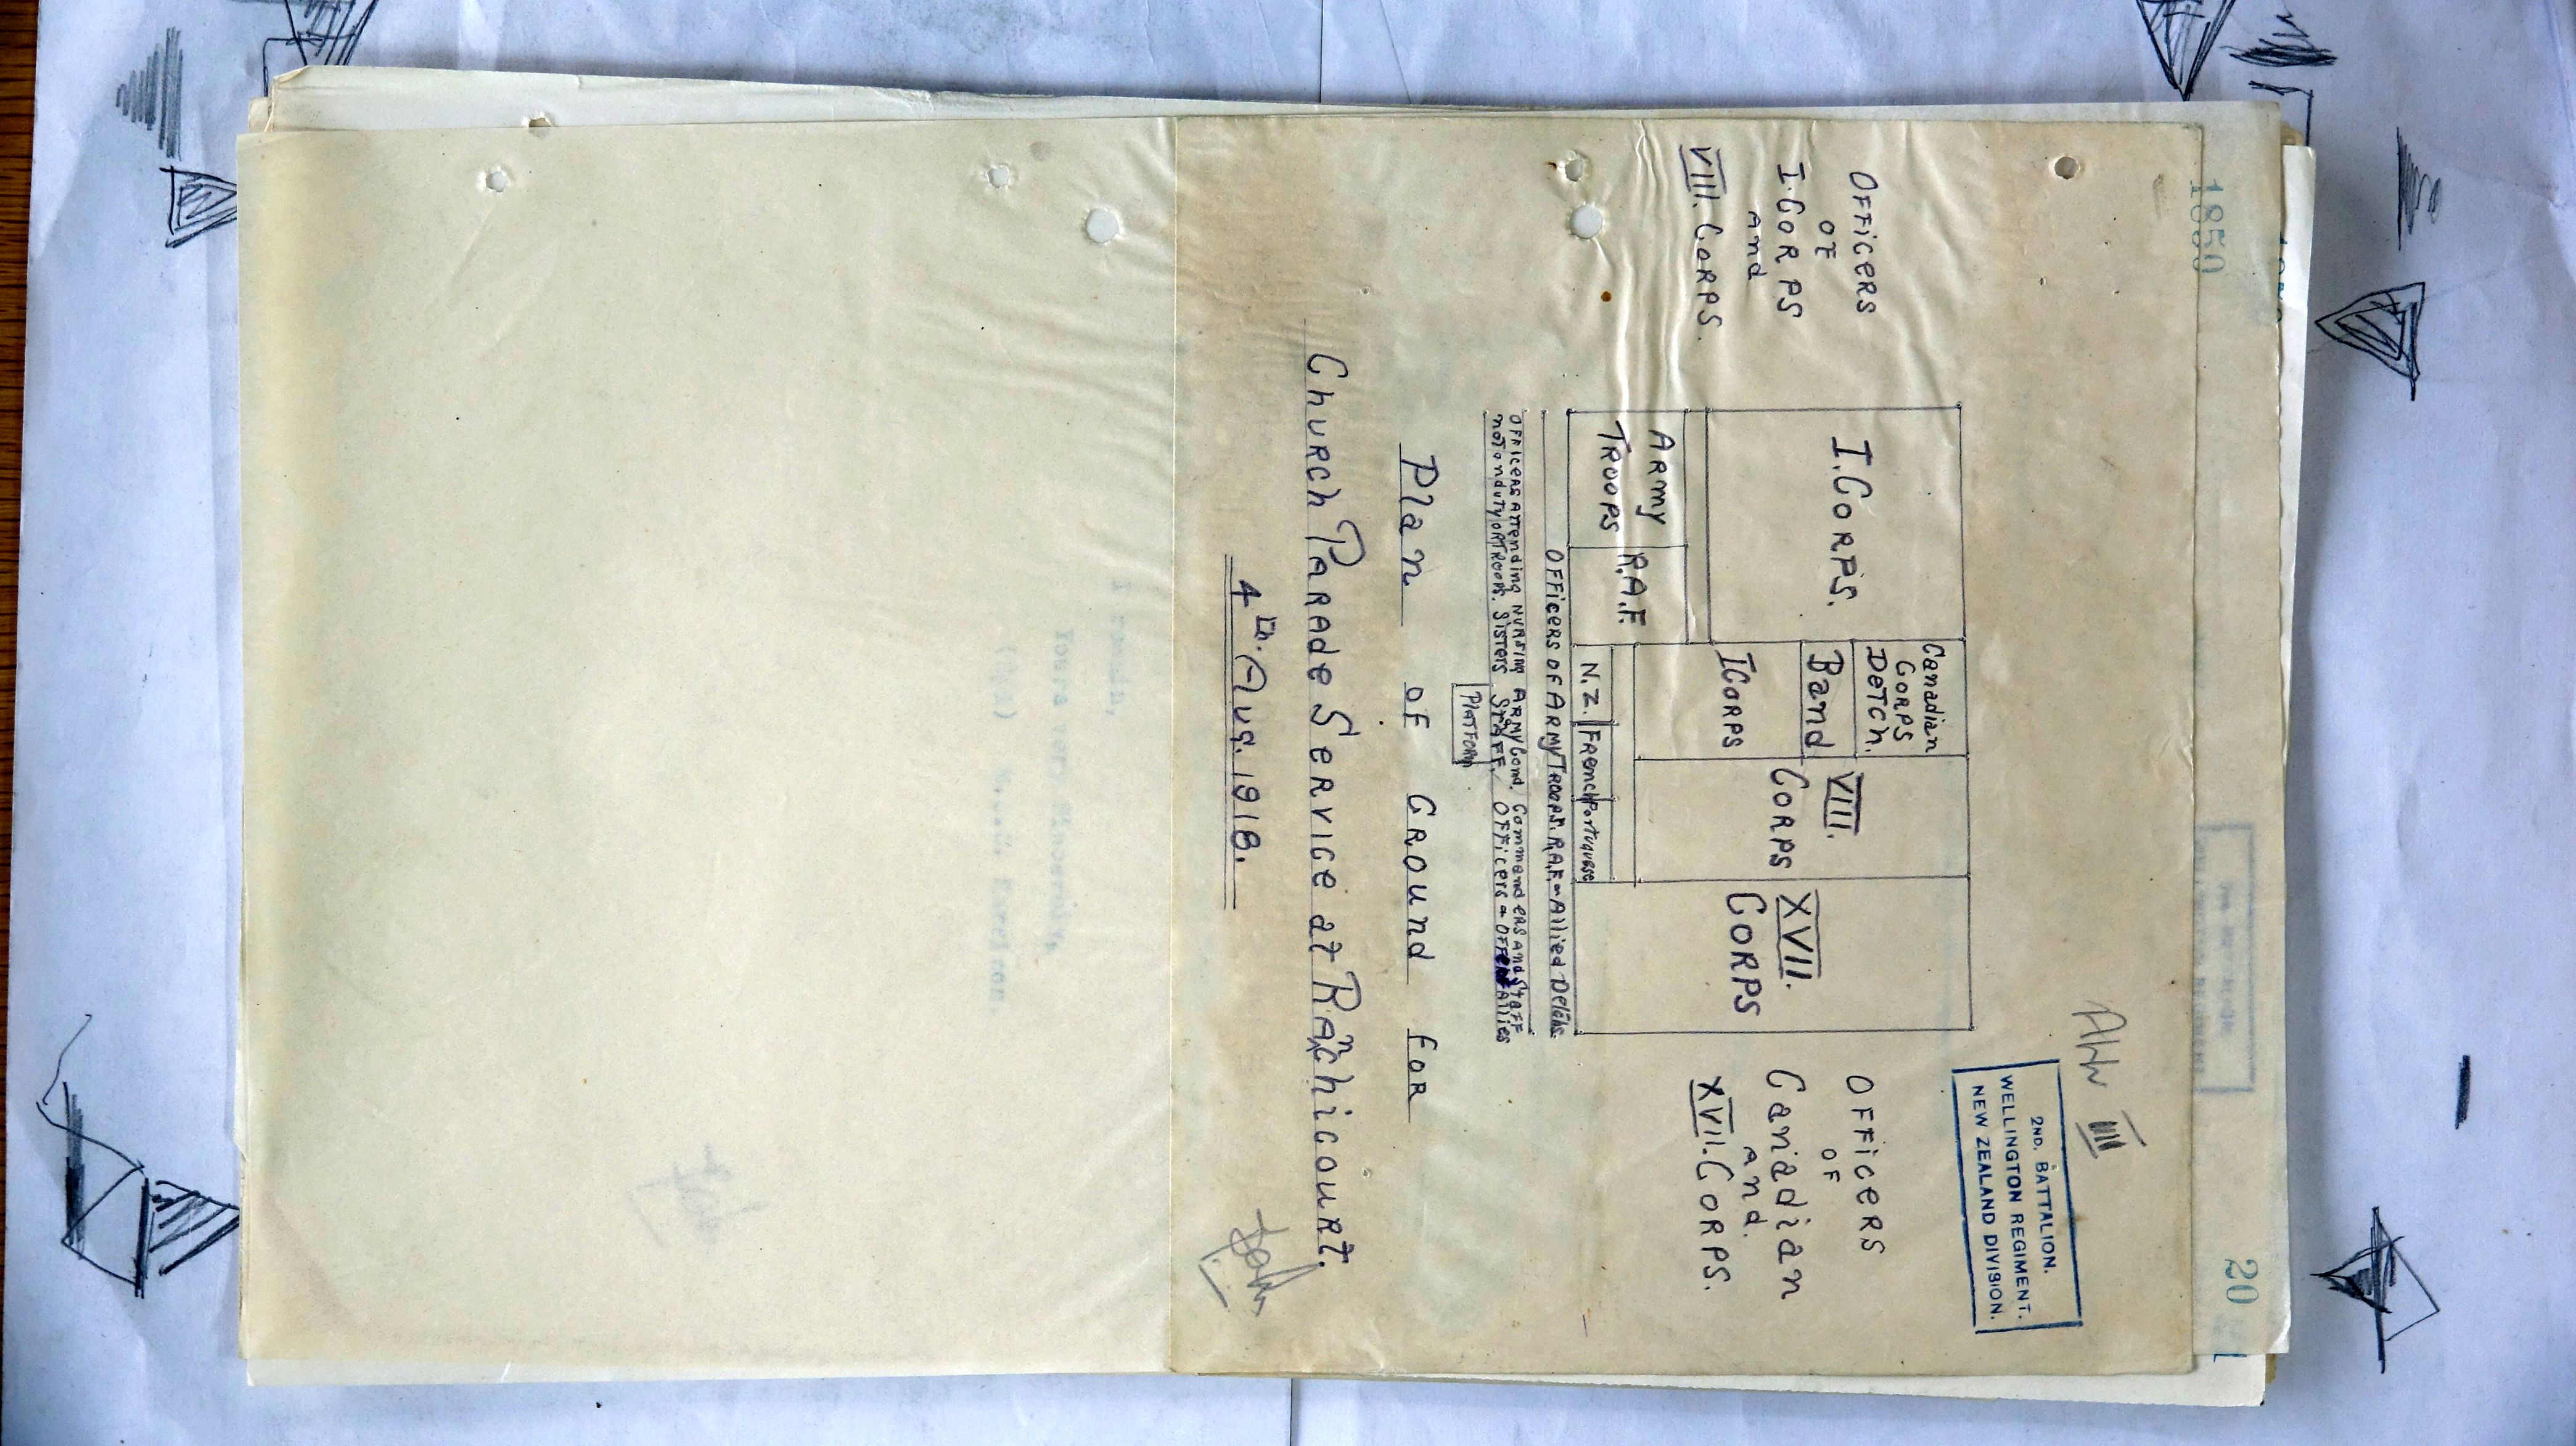 1850
20
AW III
2ND. BATTALION.
WELLINGTON REGIMENT.
NEW ZEALAND DIVISION.
OFFICERS
OF
I. CORPS
and
VIII. CORPS.
OFFICERS
OF
Canadian
and
XVII. CORPS.
I. CORPS.
Canadian
CORPS
DETCh.
Band
I CORPS
VIII.
CORPS
XVII.
CORPS
ARmy
TROOPS
R.A.F.
N.Z.
FRench
Portuguese
OFFicers of ARmy TROOPS. R.A.F. Allied Detchs.
OFFICERS ATTending NURSING ARmy Comd. Commanders and STAFF
noT on duty or TROOPS. SISTERS STAFF. OFFicers Allies
PlATFORm
Plan OF GROUND FOR
ChURCh PARAde SeRVICe at RAnchicouRT.
4th. Aug. 1918.